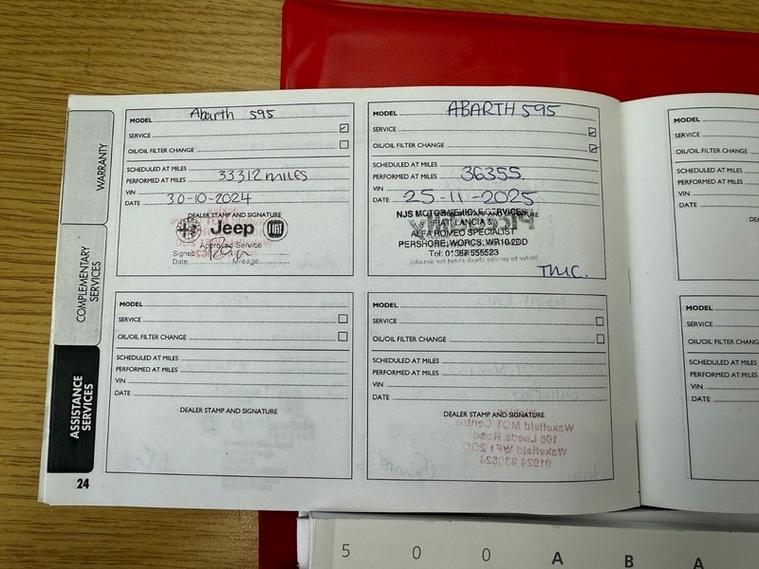 WARRANTY
COMPLEMENTARY
SERVICES
ASSISTANCE
SERVICES
24
MODEL Abarth 595
SERVICE
OIL/OIL FILTER CHANGE
SCHEDULED AT MILES
PERFORMED AT MILES 33312 MILES
VIN
DATE 30-10-2024
DEALER STAMP AND SIGNATURE
Jeep FIAT
Approved Service
Signed
Date Mileage
MODEL ABARTH 595
SERVICE
OIL/OIL FILTER CHANGE
SCHEDULED AT MILES
PERFORMED AT MILES 36355
VIN
DATE 25-11-2025
DEALER STAMP AND SIGNATURE
NJS MOTOR VEHICLE SERVICES
FIAT LANCIA &
ALFA ROMEO SPECIALIST
PERSHORE, WORCS. WR10 2DD
MODEL
SERVICE
OIL/OIL FILTER CHANGE
SCHEDULED AT MILES
PERFORMED AT MILES
VIN
DATE
DEALER STAMP AND SIGNATURE
MODEL
SERVICE
OIL/OIL FILTER CHANGE
SCHEDULED AT MILES
PERFORMED AT MILES
VIN
DATE
DEALER STAMP AND SIGNATURE
Wakefield MOT Centre
108 Leeds Road
Wakefield WF1 2QD
MODEL
SERVICE
OIL/OIL FILTER CHANGE
SCHEDULED AT MILES
PERFORMED AT MILES
VIN
DATE
MODEL
SERVICE
OIL/OIL FILTER CHANGE
SCHEDULED AT MILES
PERFORMED AT MILES
VIN
DATE
5 0 0 A B A